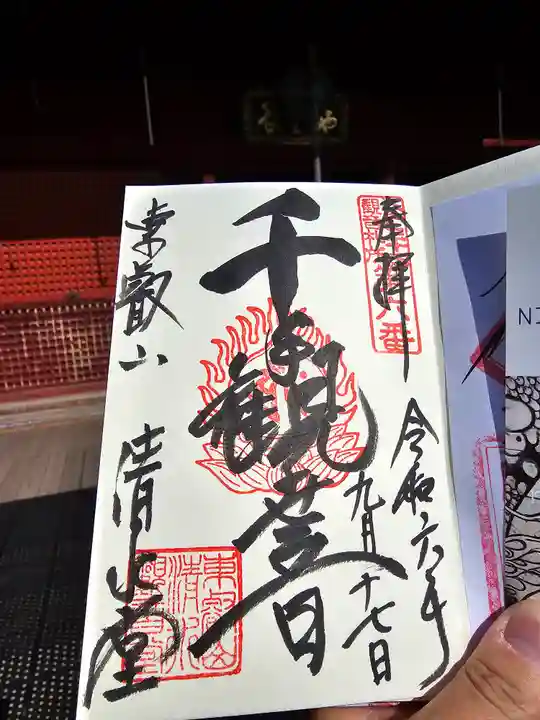 奉拝
令和六年
九月十七日
千手観世音
東叡山 清水堂
東叡山
清水
観音堂
NI